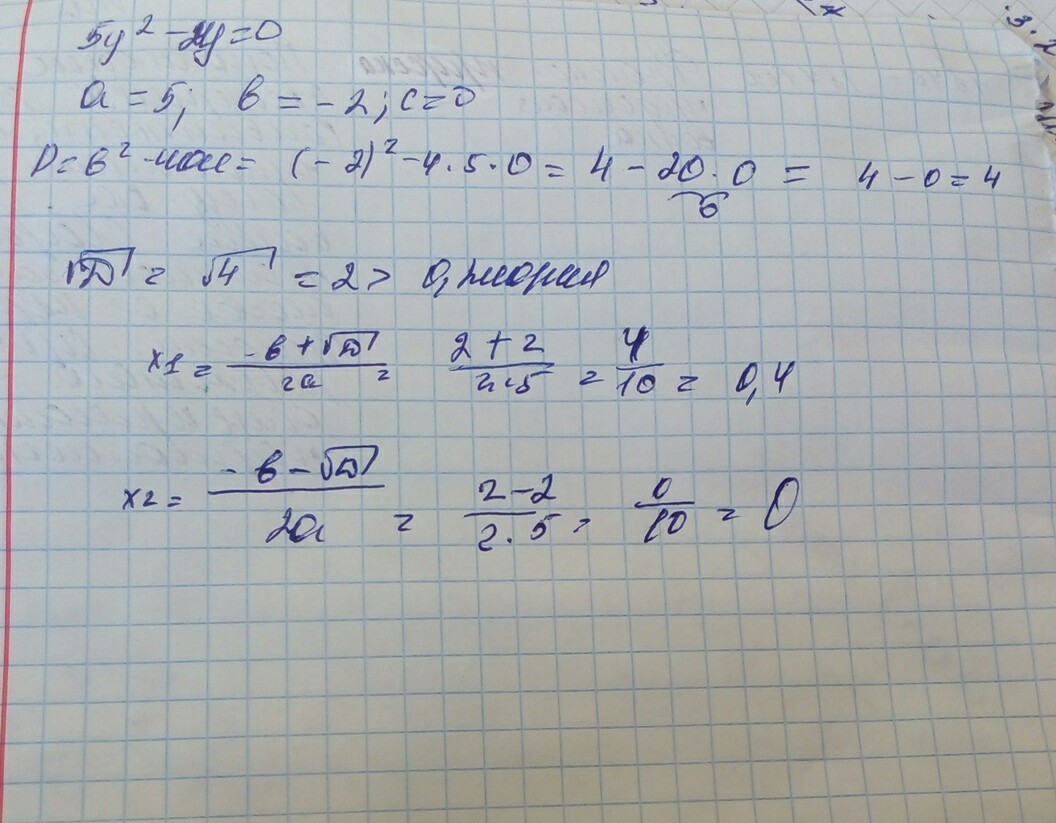 5y² - 2y = 0
a = 5; b = -2; c = 0
D = b² - 4ac = (-2)² - 4·5·0 = 4 - 20·0 = 4 - 0 = 4
0
√D = √4 = 2 > 0, 2 корня
x1 = (-b + √D)/2a = (2 + 2)/(2·5) = 4/10 = 0,4
x2 = (-b - √D)/2a = (2 - 2)/(2·5) = 0/10 = 0